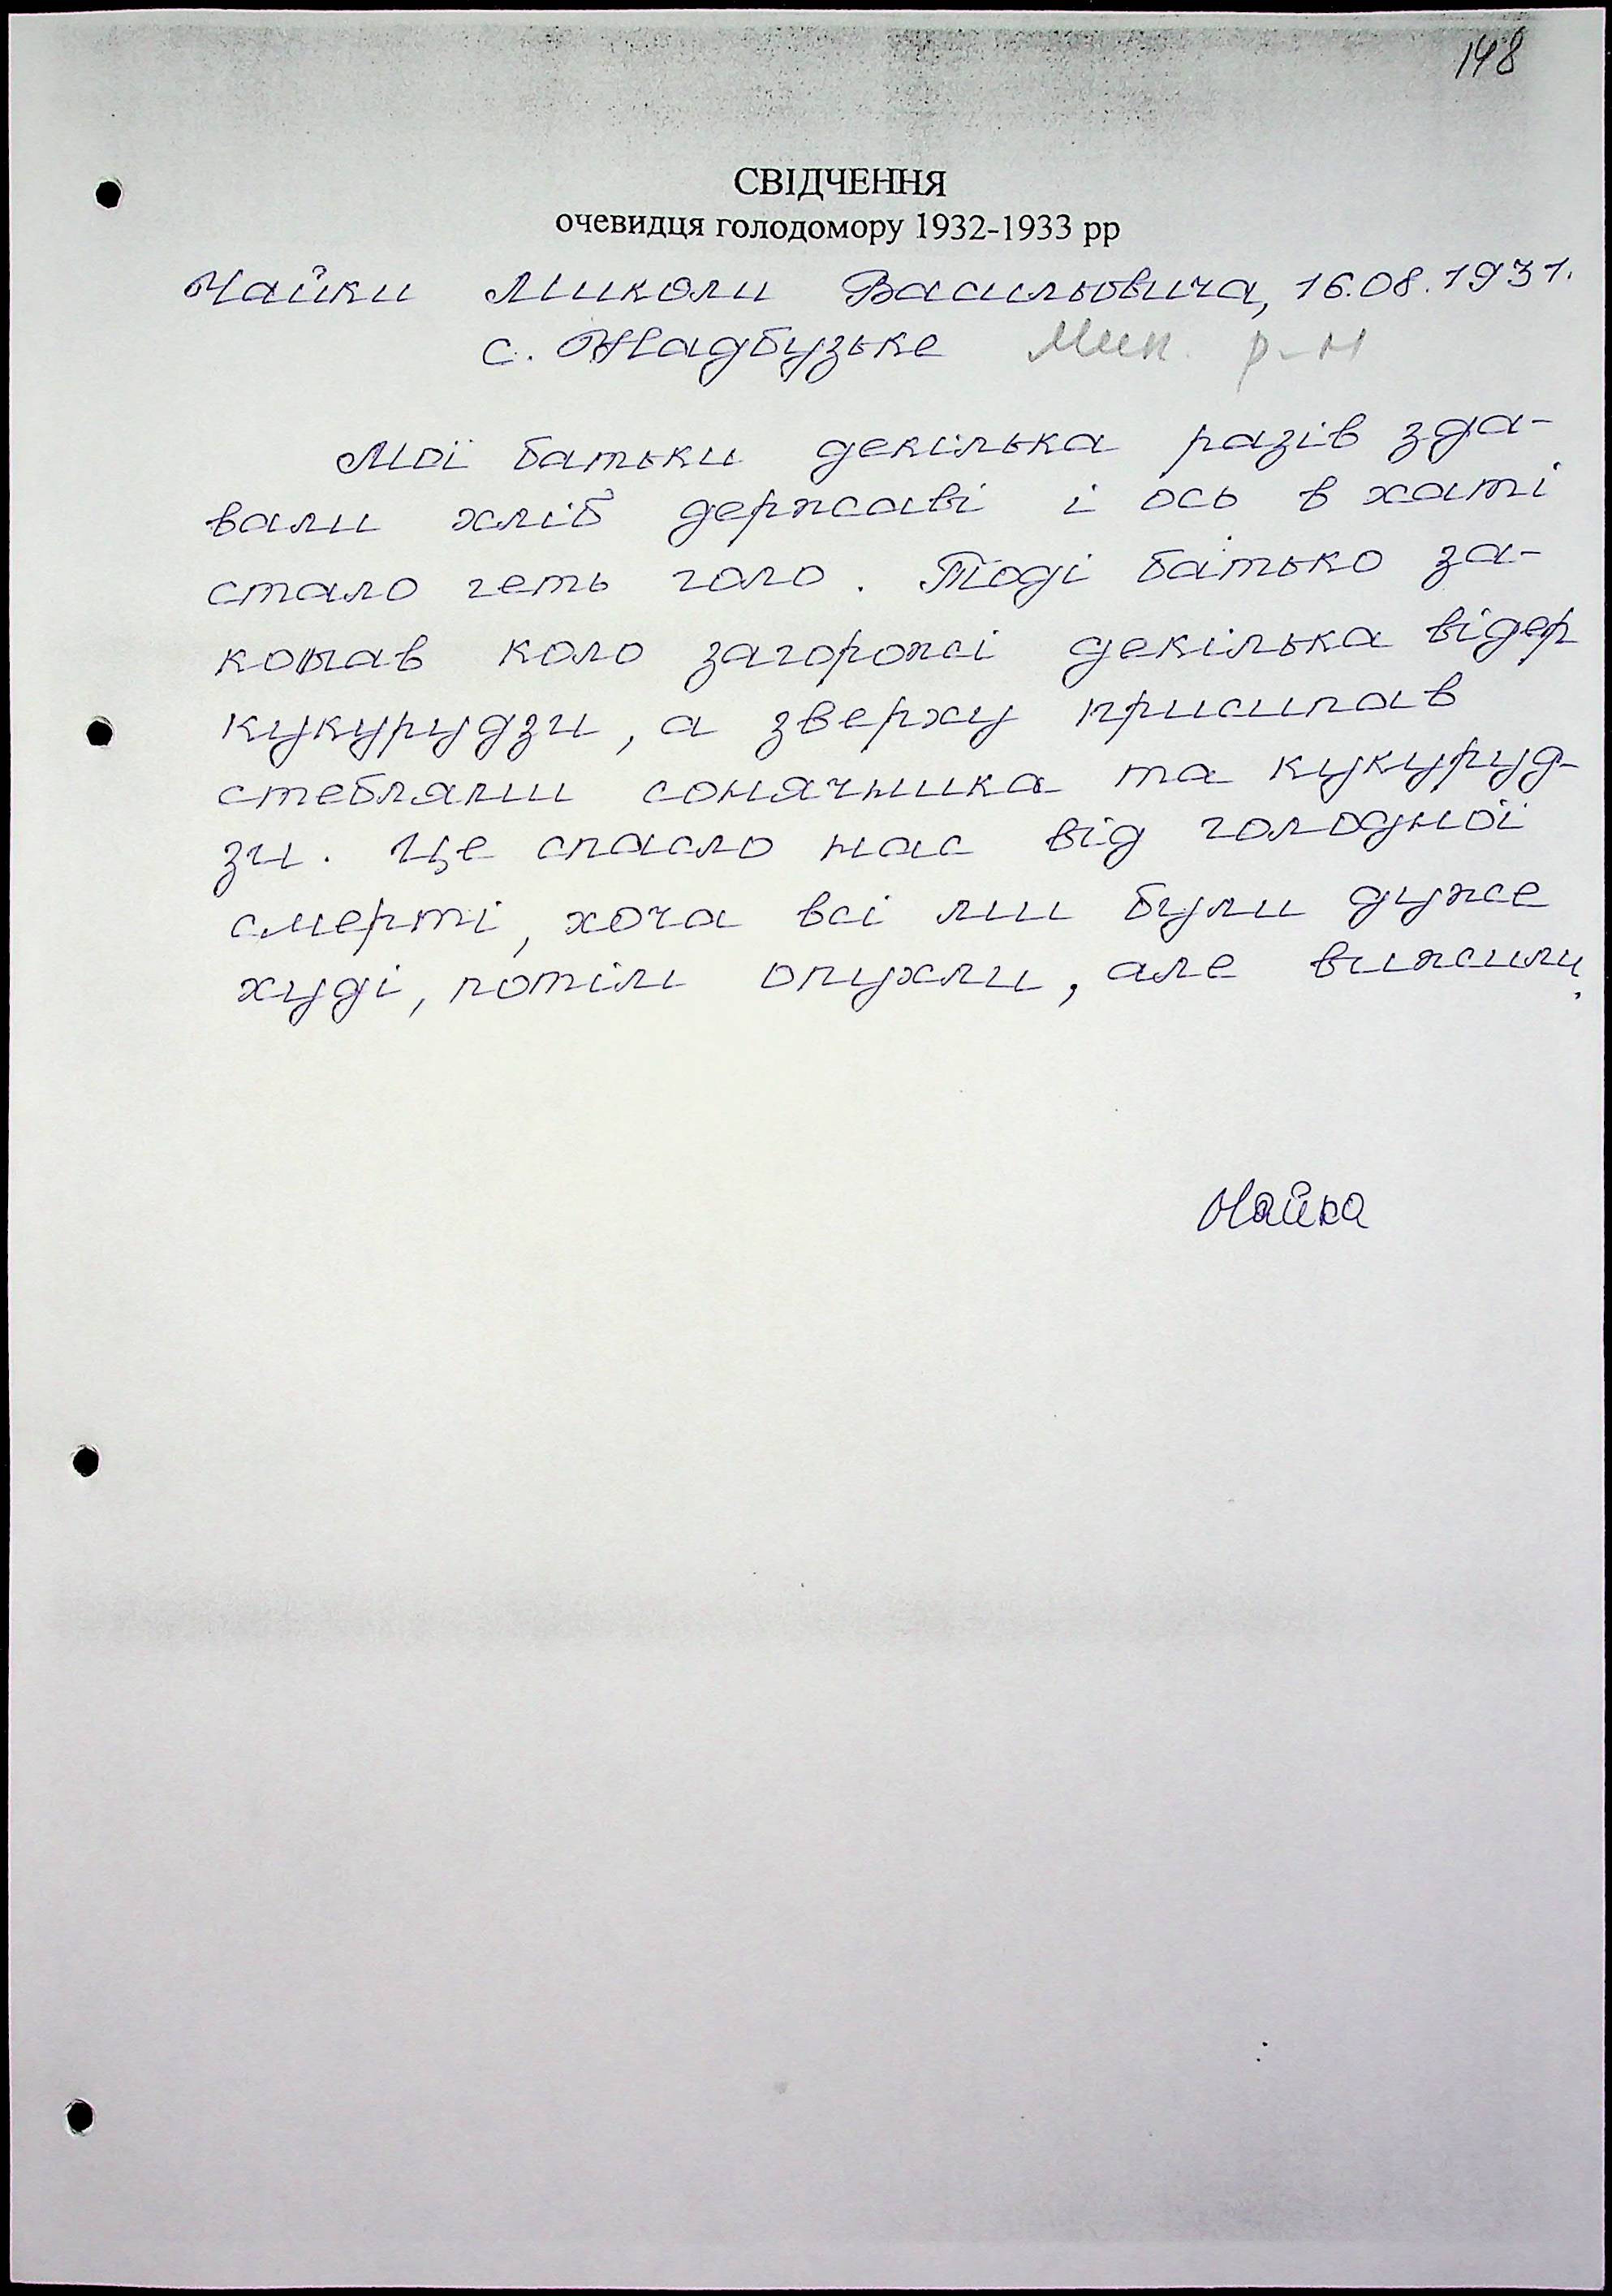 148
СВІДЧЕННЯ
очевидця голодомору 1932-1933 рр
Чайки Миколи Васильовича, 16.08.1931.
с. Надбузьке Мик. р-н
Мої батьки декілька разів зда-
вали хліб державі і ось в хаті
стало геть голо. Тоді батько за-
копав коло загорожі декілька відер
кукурудзи, а зверху присипав
стеблями сонячника та кукуруд-
зи. Це спасло нас від голодної
смерті, хоча всі ми були дуже
худі, потім опухли, але вижили.
Чайка